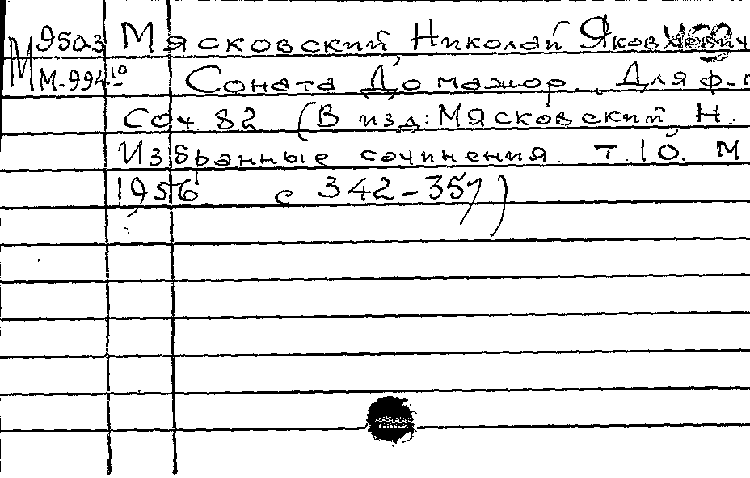 М 950a3 Мясковский Николай Яковлевич
М-994 10 Соната До мажор. Для ф-п
Соч 82 (В изд: Мясковский, Н.
Избранные сочинения т. 10. М
1956 с 342-357)